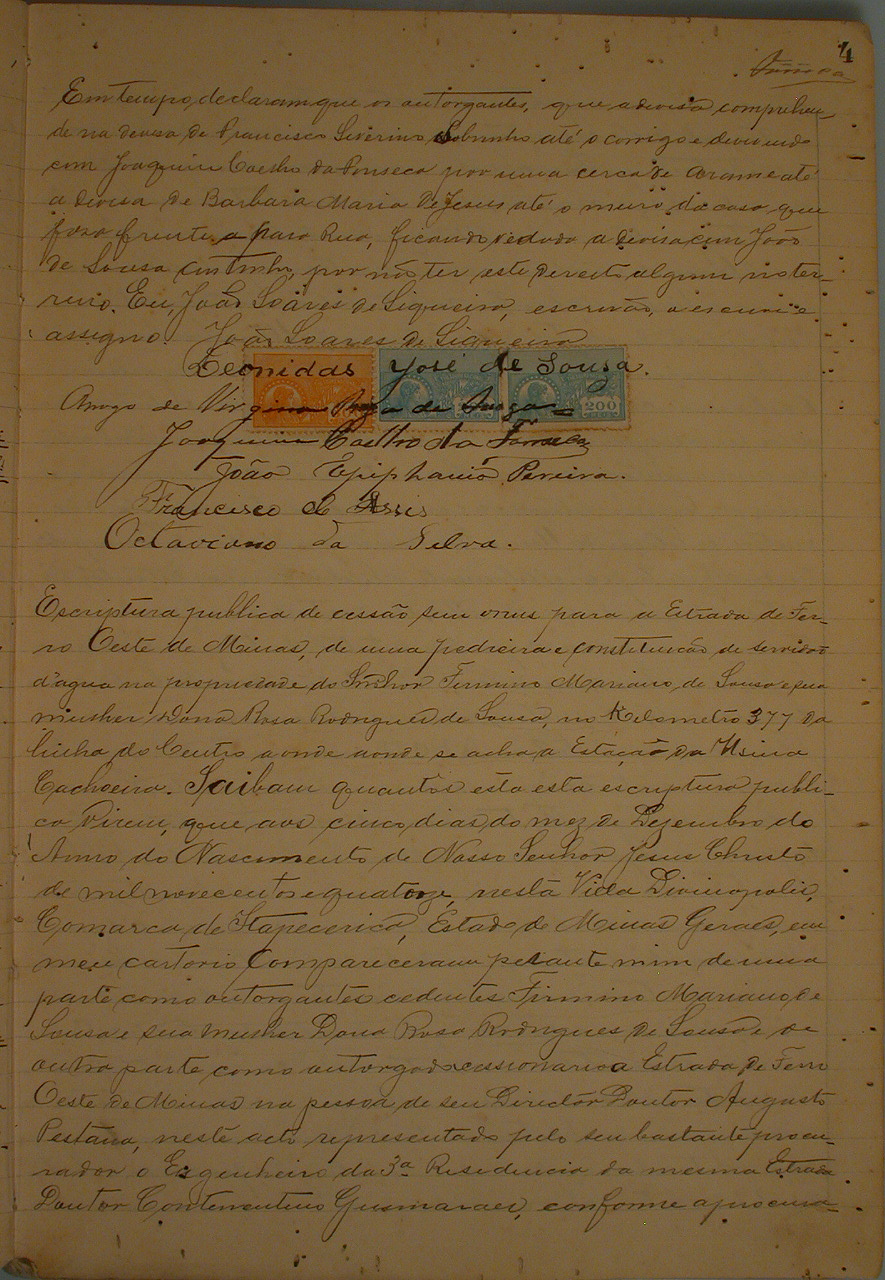 4
Em tempo, declaram que os outorgantes, que a devisa comprehen-
de na devisa de Francisco Severino Sobrinho até o corrigo e devidindo
com Joaquim Coelho da Fonseca por uma cerca de Arame até
a devisa de Barbara Maria de Jesus até o muro da casa que
faso frente a para Rua, ficando vedado a devisa com João
de Sousa Coitinho, por nós ter este dereito algum no ter-
reno. Eu, João Soares de Siqueira, escrivão, o escrevi e
assigno. João Soares de Siqueira
Leonidas José de Souza.
Arogo de Virgina Roza de
200
Joaquim Coelho da Fonseca
João Epiphanio Pereira.
Francisco de Assis
Octaviano da Silva.
Escriptura publica de cessão sem onus para a Estrada de Fer-
ro Oeste de Minas, de uma pedreira e constituição de servidão
d'agua na propriedade do Senhor Firmino Mariano de Sousa e sua
mulher Dona Rosa Rodrigues de Sousa, no Kelometro 377 da
linha do Centro aonde aonde se acha a Estação da Usina
Cachoeira. Saibam quantos esta esta escriptura publi-
ca virem, que aos cinco dias do mez de Dezembro do
Anno do Nascimento de Nosso Senhor Jesus Christo
de mil novecentos e quatorze, nesta Villa Divinopolis,
Comarca de Itapecerica, Estado de Minas Geraes, em
meu cartorio Compareceram perante mim de uma
parte como outorgantes cedentes Firmino Mariano de
Sousa e sua mulher Dona Rosa Rodrigues de Sousa e de
outra parte como outorgada cessionaria a Estrada de Ferro
Oeste de Minas na pessoa de seu Director Doutor Augusto
Pestana, neste acto representado pelo seu bastante procu-
rador o Engenheiro da 3ª Residencia da mesma Estrada
Doutor Contenentino Guimaraes, conforme a procura-